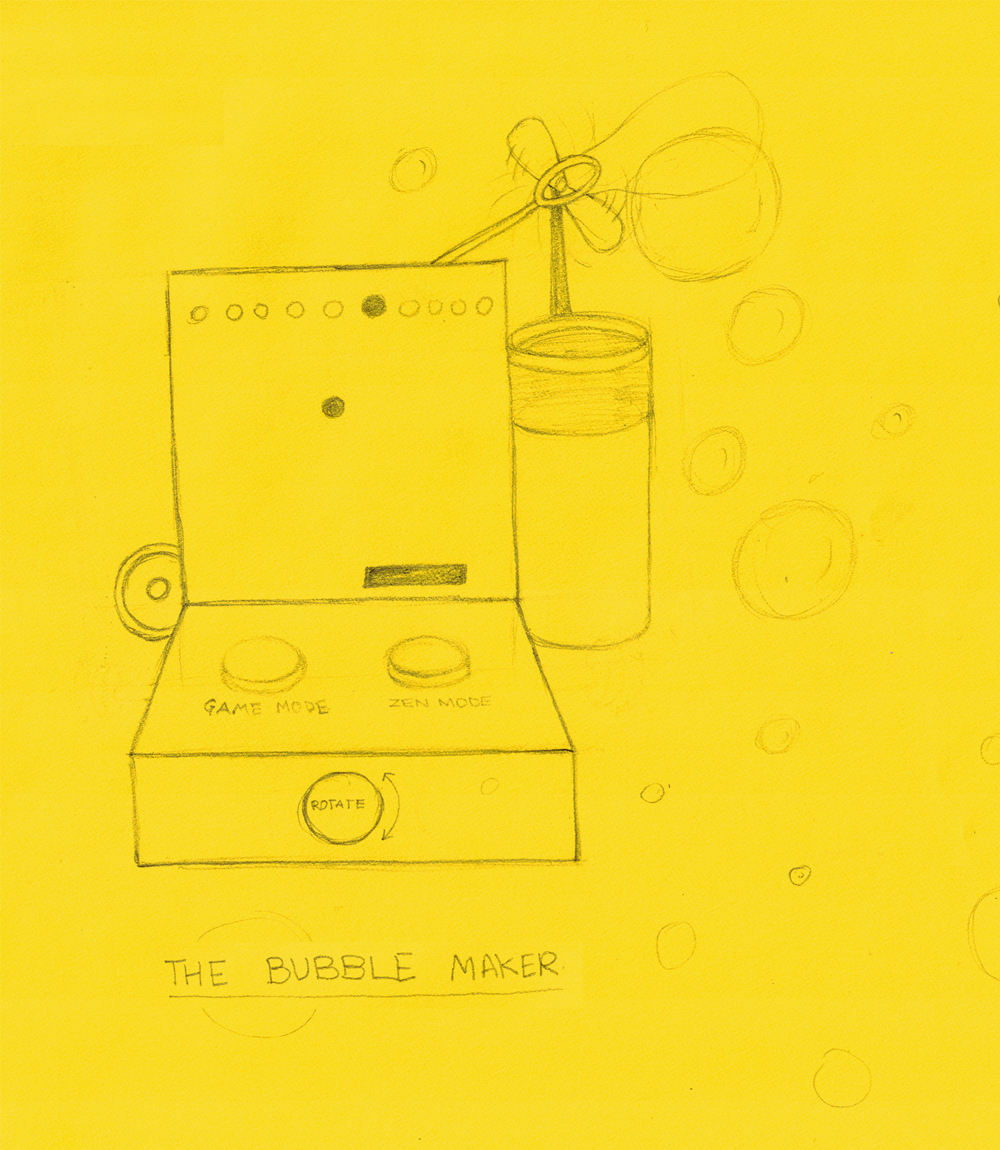 GAME MODE ZEN MODE
ROTATE
THE BUBBLE MAKER